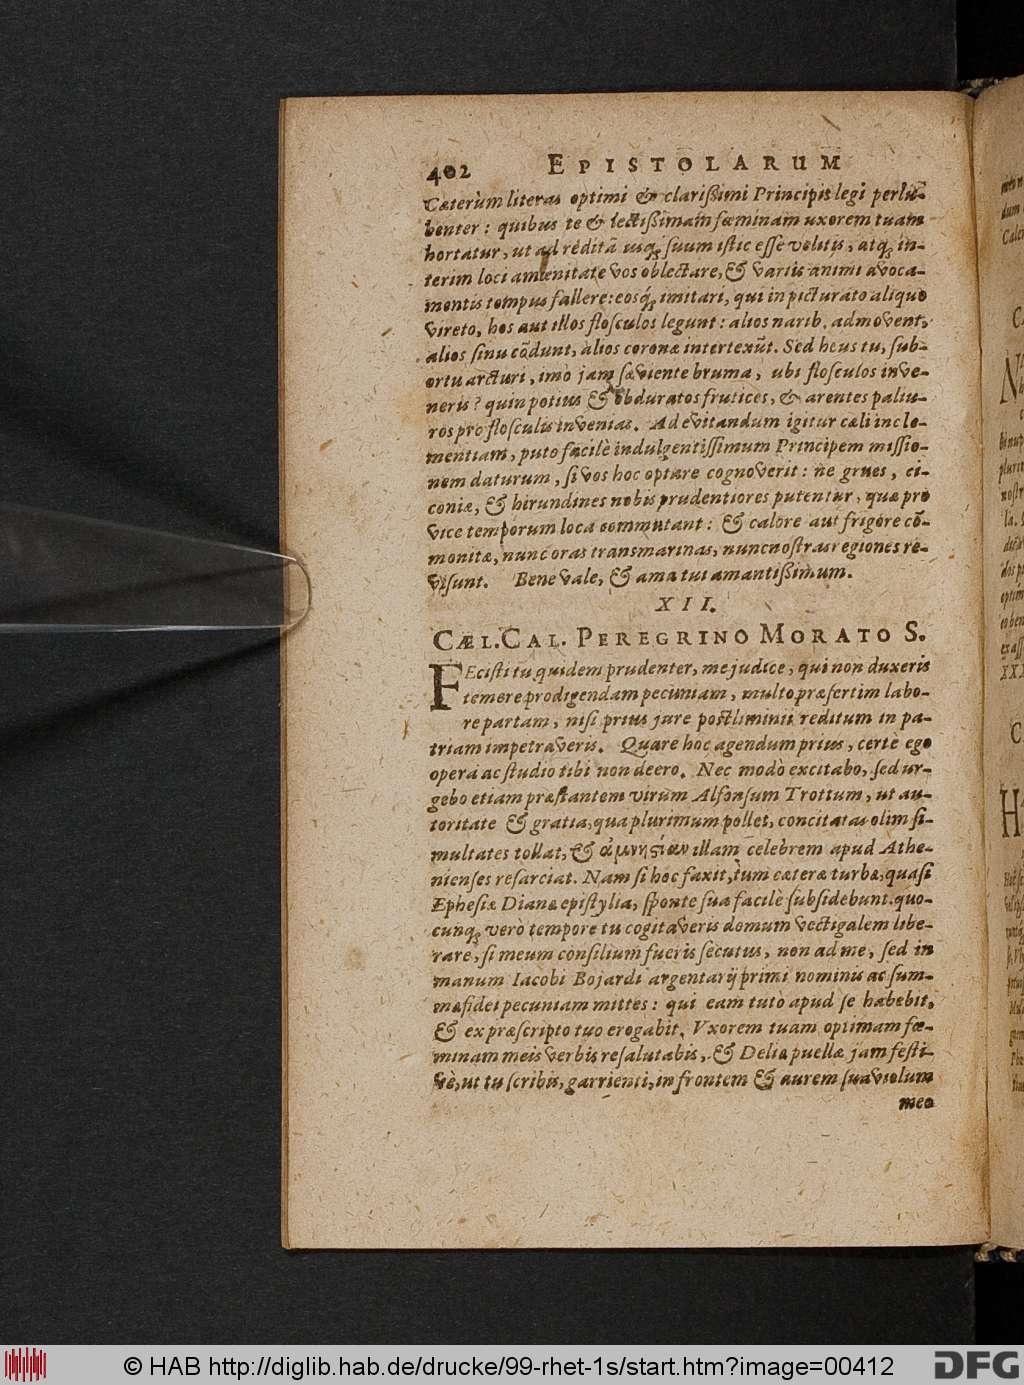 402 EPISTOLARUM
Cæterùm literas optimi & clarißimi Principis legi perlu-
benter: quibus te & lectißimam fæminam uxorem tuam
hortatur, ut ad reditā usq; suum istic esse velitis, atq; in-
terim loci amœnitate vos oblectare, & variis animi avoca-
mentis tempus fallere: eosq́; imitari, qui in picturato aliquo
vireto, hos aut illos flosculos legunt: alios narib. admovent,
alios sinu cōdunt, alios coronæ intertexūt. Sed heus tu, sub-
ortu arcturi, imò jam sæviente bruma, ubi flosculos inve-
neris? quin potius & obduratos frutices, & arentes paliu-
ros pro flosculis invenias. Ad evitandum igitur cæli incle-
mentiam, puto facilè indulgentissimum Principem missio-
nem daturum, si vos hoc optare cognoverit: ne grues, ci-
coniæ, & hirundines nobis prudentiores putentur, quæ pro
vice temporum loca commutant: & calore aut frigore cō-
monitæ, nunc oras transmarinas, nunc nostras regiones re-
visunt. Bene vale, & ama tui amantißimum.
XII.
CÆL. CAL. PEREGRINO MORATO S.
FEcisti tu quidem prudenter, me judice, qui non duxeris
temere prodigendam pecuniam, multo præsertim labo-
re partam, nisi prius jure postliminii reditum in pa-
triam impetraveris. Quare hoc agendum prius, certè ego
opera ac studio tibi non deero. Nec modò excitabo, sed ur-
gebo etiam præstantem virum Alfonsum Trottum, ut au-
toritate & gratia, qua plurimum pollet, concitatas olim si-
multates tollat, & ἀμνηςίαν illam celebrem apud Athe-
nienses resarciat. Nam si hoc faxit, tum cæteræ turbæ, quasi
Ephesiæ Dianæ epistylia, sponte sua facilè subsidebunt. quo-
cunq; verò tempore tu cogitaveris domum vectigalem libe-
rare, si meum consilium fueris secutus, non ad me, sed in
manum Iacobi Bojardi argentarij primi nominis ac sum-
mæ fidei pecuniam mittes: qui eam tutò apud se habebit,
& ex præscripto tuo erogabit. Vxorem tuam optimam fœ-
minam meis verbis resalutabis, & Deliæ puellæ jam festi-
vè, ut tu scribis, garrienti, in frontem & aurem suaviolum
meo
© HAB http://diglib.hab.de/drucke/99-rhet-1s/start.htm?image=00412
DFG